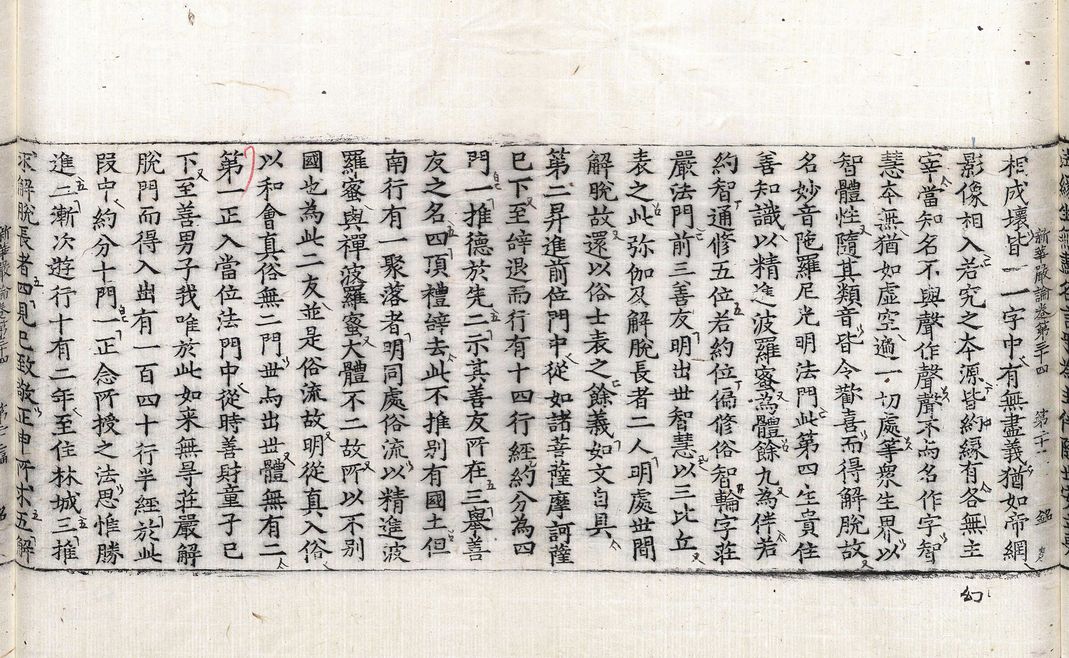 新華嚴論卷第三十四 第二十一 銘
相成壞皆一一字中有無盡義猶如帝網
影像相入若究之本源皆約緣有各無主
宰當知名不與聲作聲聲不与名作字智
慧本無猶如虛空遍一切處等衆生界以
智體性隨其類音皆令歡喜而得解脫故
名妙音陁羅尼光明法門此第四生貴住
善知識以精進波羅蜜為體餘九為伴若
約智通修五位若約位偏修俗智輪字莊
嚴法門前三善友明出世智慧以三比丘
表之此弥伽及解脫長者二人明處世間
解脫故還以俗士表之餘義如文自具
第二昇進前位門中從如諸菩薩摩訶薩
已下至辝退而行有十四行經約分為四
門一推德於先二示其善友所在三舉善
友之名四頂禮辝去此不推別有國土但
南行有一聚落者明同處俗流以精進波
羅蜜與禪波羅蜜大體不二故所以不別
國也為此二友並是俗流故明從真入俗
以和會真俗無二門世与出世體無有二
第一正入當位法門中從時善財童子已
下至善男子我唯於此如來無㝵莊嚴解
脫門而得入出有一百四十行半經於此
段中約分十門一正念所授之法思惟勝
進二漸次遊行十有二年至住林城三推
求解脫長者四見已致敬正申所求五解
幻